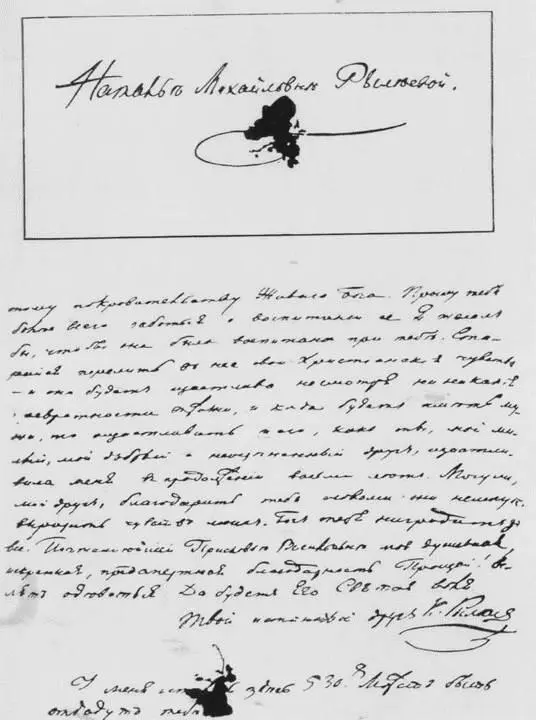 Натальѣ Михайловнѣ Рылѣевой.
тому покровительству Живаго Бога. Прошу тебя
болѣе всего заботься о воспитаніи ее. Я желалъ
бы, чтобы она была воспитана при тебѣ. Ста-
райся перелить въ нее свои Христіанскія чувства
– и она будетъ щастлива несмотря ни на какія
превратности въ жизни, и когда будетъ имѣть му-
жа, то ощастливитъ и его, какъ ты, мой ми-
лый, мой добрый и неоцѣненный другъ, щастли-
вила меня въ продолженіи восьми лѣтъ. Могу ли,
мой другъ, благодарить тебя словами: они не могутъ
выразить чувствъ моихъ. Богъ тебя наградитъ за
все. Почтеннѣйшей Прасковьѣ Васильевнѣ моя душевная,
искренняя, предсмертная благодарность. Прощай! Ве-
лятъ одѣваться. Да будетъ Его Святая воля
Твой истинный другъ К. Рылѣевъ
У меня здѣсь 530 р. Можетъ быть
отдадутъ тебѣ